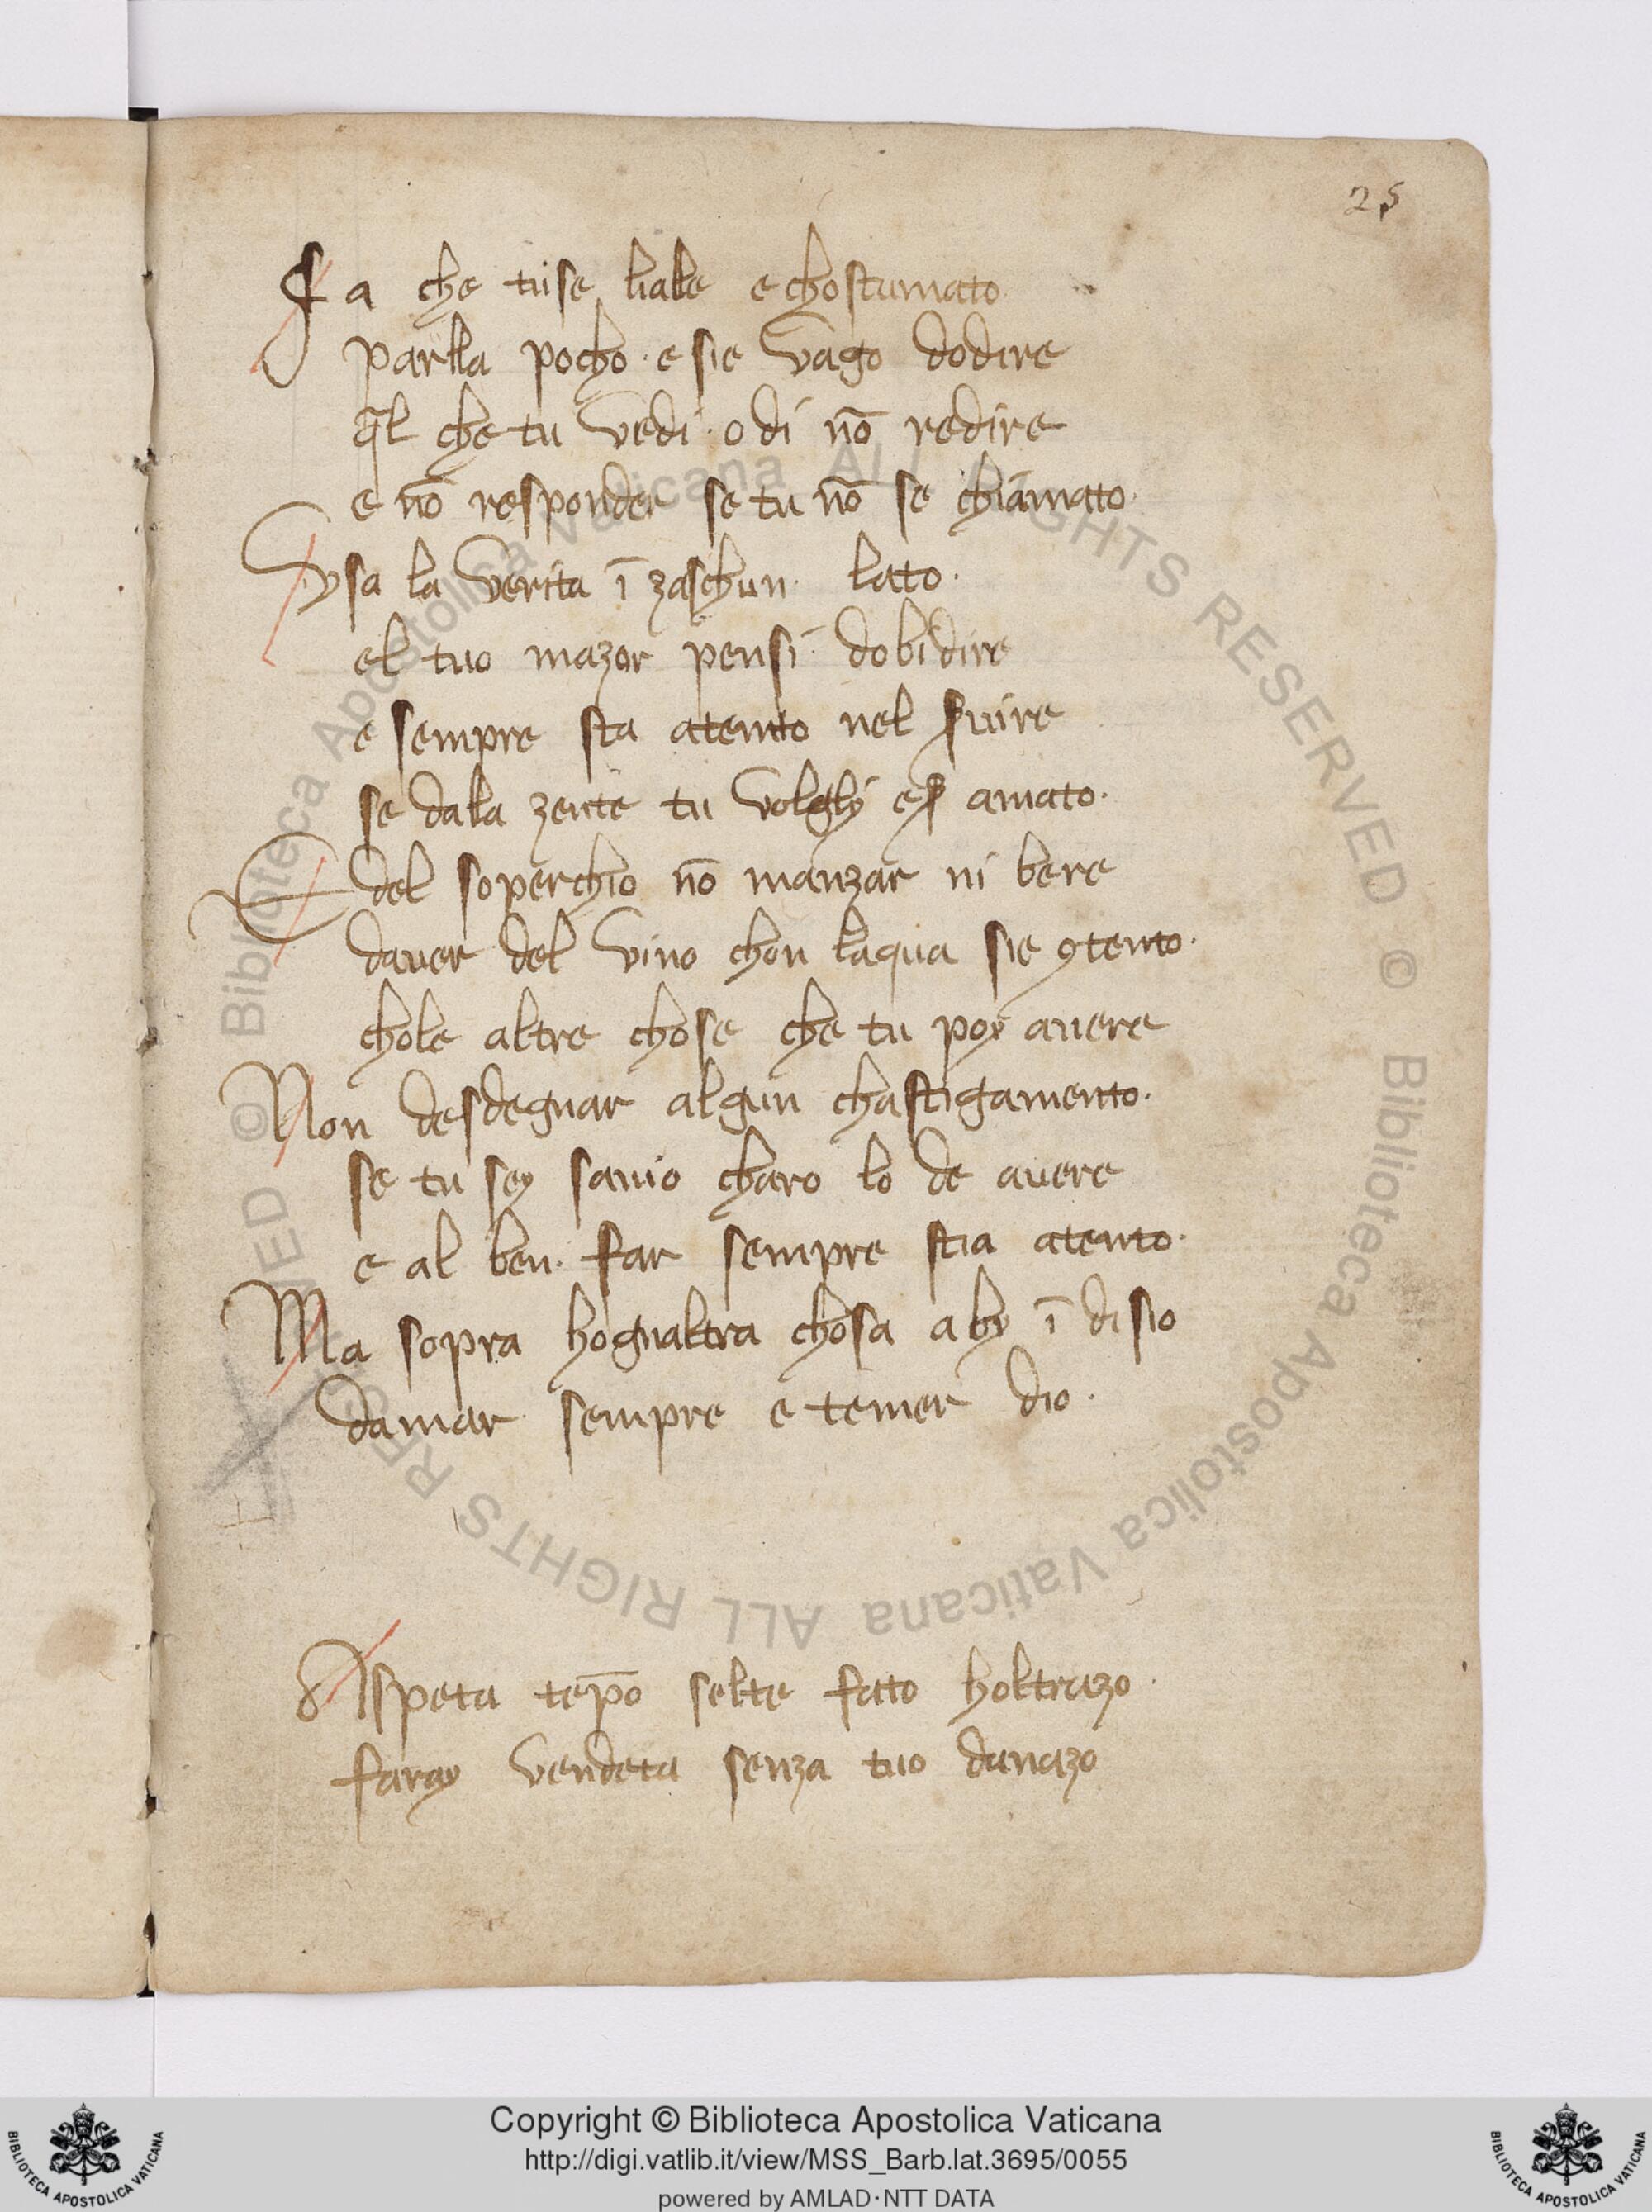 25
Fa che tu se liale e chostumato
parlla pocho · e sie vago dodire
q̄l che tu vedi · o di nō redire
e nō responder se tu nō se chiamato ·
Vsa la verita ī zaschun lato ·
el tuo mazor pensi dobidire
e sempre sta atento nel ꝓuire
se dala zente tu volgly eꝓ amato ·
E del soperchio nō manzar ni bere
dauer del vino chon laqua sie ꝯtento ·
chole altre chose che tu poy auere
Non desdegnar algun chastigamento ·
se tu sey sauio charo lo de auere
e al ben · far sempre stia atento ·
Ma sopra hognaltra chosa aby ī disio
damar sempre e temer dio ·
Aspeta tēpo selte fato holtrazo ·
faray vendeta senza tuo danazo
Copyright © Biblioteca Apostolica Vaticana
http://digi.vatlib.it/view/MSS_Barb.lat.3695/0055
powered by AMLAD·NTT DATA
BIBLIOTECA APOSTOLICA VATICANA
BIBLIOTECA APOSTOLICA VATICANA
© Biblioteca Apostolica Vaticana ALL RIGHTS RESERVED © Biblioteca Apostolica Vaticana ALL RIGHTS RESERVED